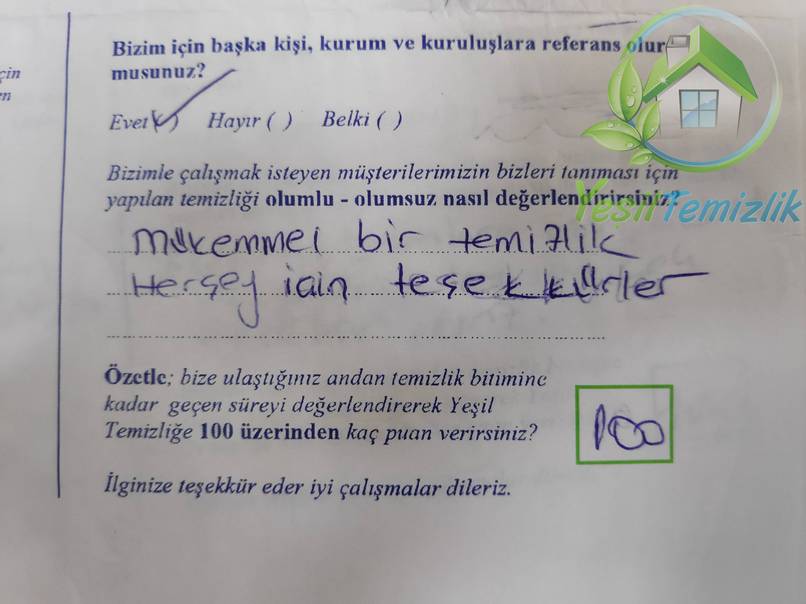 çin
en
Bizim için başka kişi, kurum ve kuruluşlara referans olur
musunuz?
Evet (✓) Hayır ( ) Belki ( )
Bizimle çalışmak isteyen müşterilerimizin bizleri tanıması için
yapılan temizliği olumlu - olumsuz nasıl değerlendirirsiniz?
YeşilTemizlik
mükemmel bir temizlik
Herşey için teşekkürler
Özetle; bize ulaştığınız andan temizlik bitimine
kadar geçen süreyi değerlendirerek Yeşil
Temizliğe 100 üzerinden kaç puan verirsiniz?
100
İlginize teşekkür eder iyi çalışmalar dileriz.